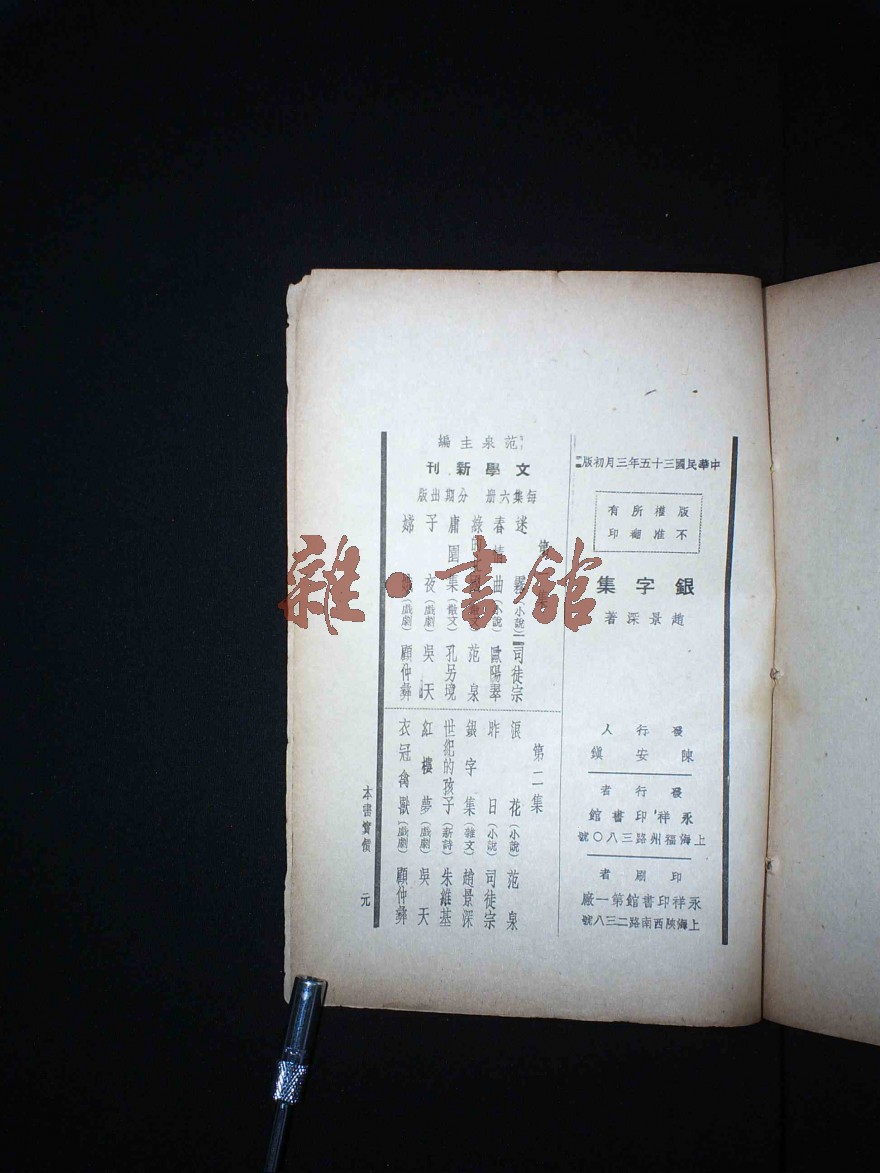 中華民國三十五年三月初版
版權所有
不准翻印
銀字集
趙景深著
發行人
陳安鎮
發行者
永祥印書館
上海福州路三八〇號
印刷者
永祥印書館第一廠
上海陝西南路二三八號
范泉主編
文學新刊
每集六冊 分期出版
第集
迷霧(小說)司徒宗
春情曲(小說)歐陽翠
綠的 范泉
庸園集(散文)孔另境
子夜(戲劇)吳天
嫦 (戲劇)顧仲彝
第二集
浪花(小說)范泉
昨日(小說)司徒宗
銀字集(雜文)趙景深
世紀的孩子(新詩)朱維基
紅樓夢(戲劇)吳天
衣冠禽獸(戲劇)顧仲彝
本書實價 元
雜·書館